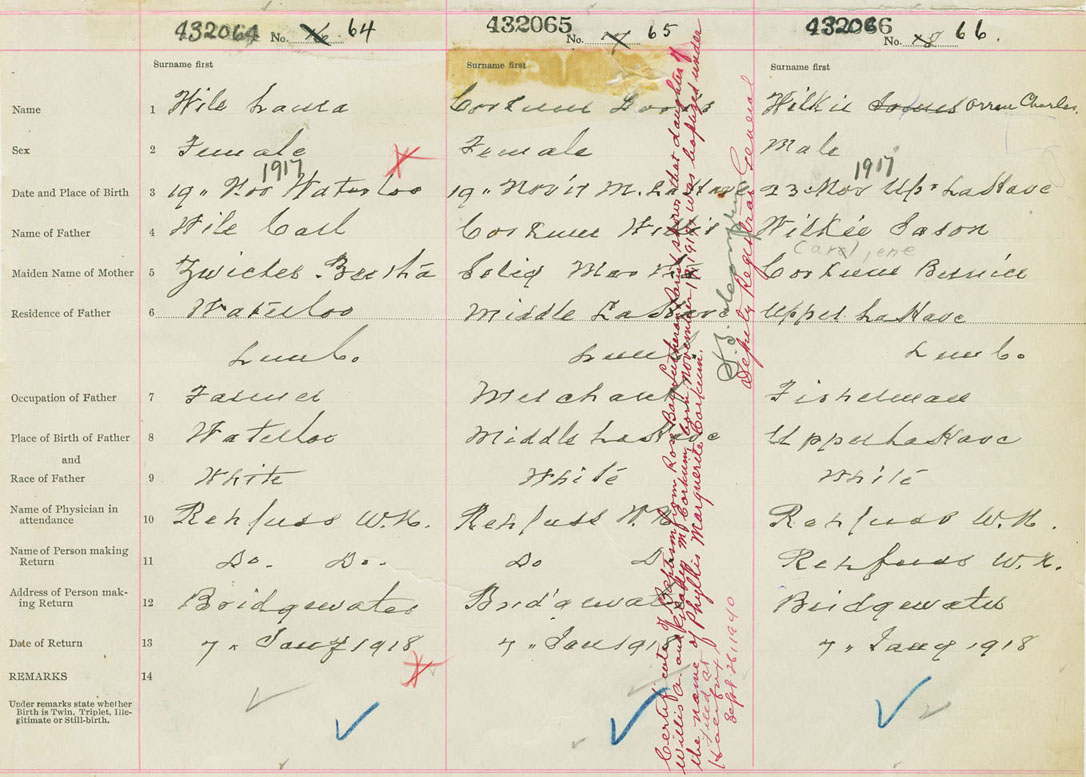 432064 No. 64
432065 No. 7 65
432066 No. 8 66
Surname first
Surname first
Surname first
Name 1 Wile Laura
Corkum Doris
Wilkie James Orren Charles.
Sex 2 Female
Female
Male
1917
1917
Date and Place of Birth 3 19" Nov Waterloo
19" Nov 17 M. LaHave
23 Nov Up. LaHave
Name of Father 4 Wile Carl
Corkum Willis
Wilkie Jason
Carol jene
Maiden Name of Mother 5 Zwicker Bertha
Selig
Corkum Bernice
Residence of Father 6 Waterloo
Middle LaHave
Upper LaHave
Lun Co.
Lun
Lun Co.
Occupation of Father 7 Farmer
Merchant
Fisherman
Place of Birth of Father 8 Waterloo
Middle LaHave
Upper LaHave
and
Race of Father 9 White
White
White
Name of Physician in
attendance 10 Rehfuss W.H.
Rehfuss W.H.
Rehfuss W.H.
Name of Person making
Return 11 Do. Do.
Do D
Rehfuss W.H.
Address of Person mak-
ing Return 12 Bridgewater
Bridgewater
Bridgewater
Date of Return 13 7" Jany 1918
7" Jan 1918
7" Jany 1918
REMARKS 14
Under remarks state whether
Birth is Twin, Triplet, Ille-
gitimate or Still-birth.
Certificate of Baptism from Rose Bay Lutheran Parish shows that daughter of
Willis A. and M. Corkum, born November 19, 1917 was baptized under
the name of Phyllis Marguerite Corkum.
Filed at
Halifax
Sept 26, 1940
Deputy Registrar General